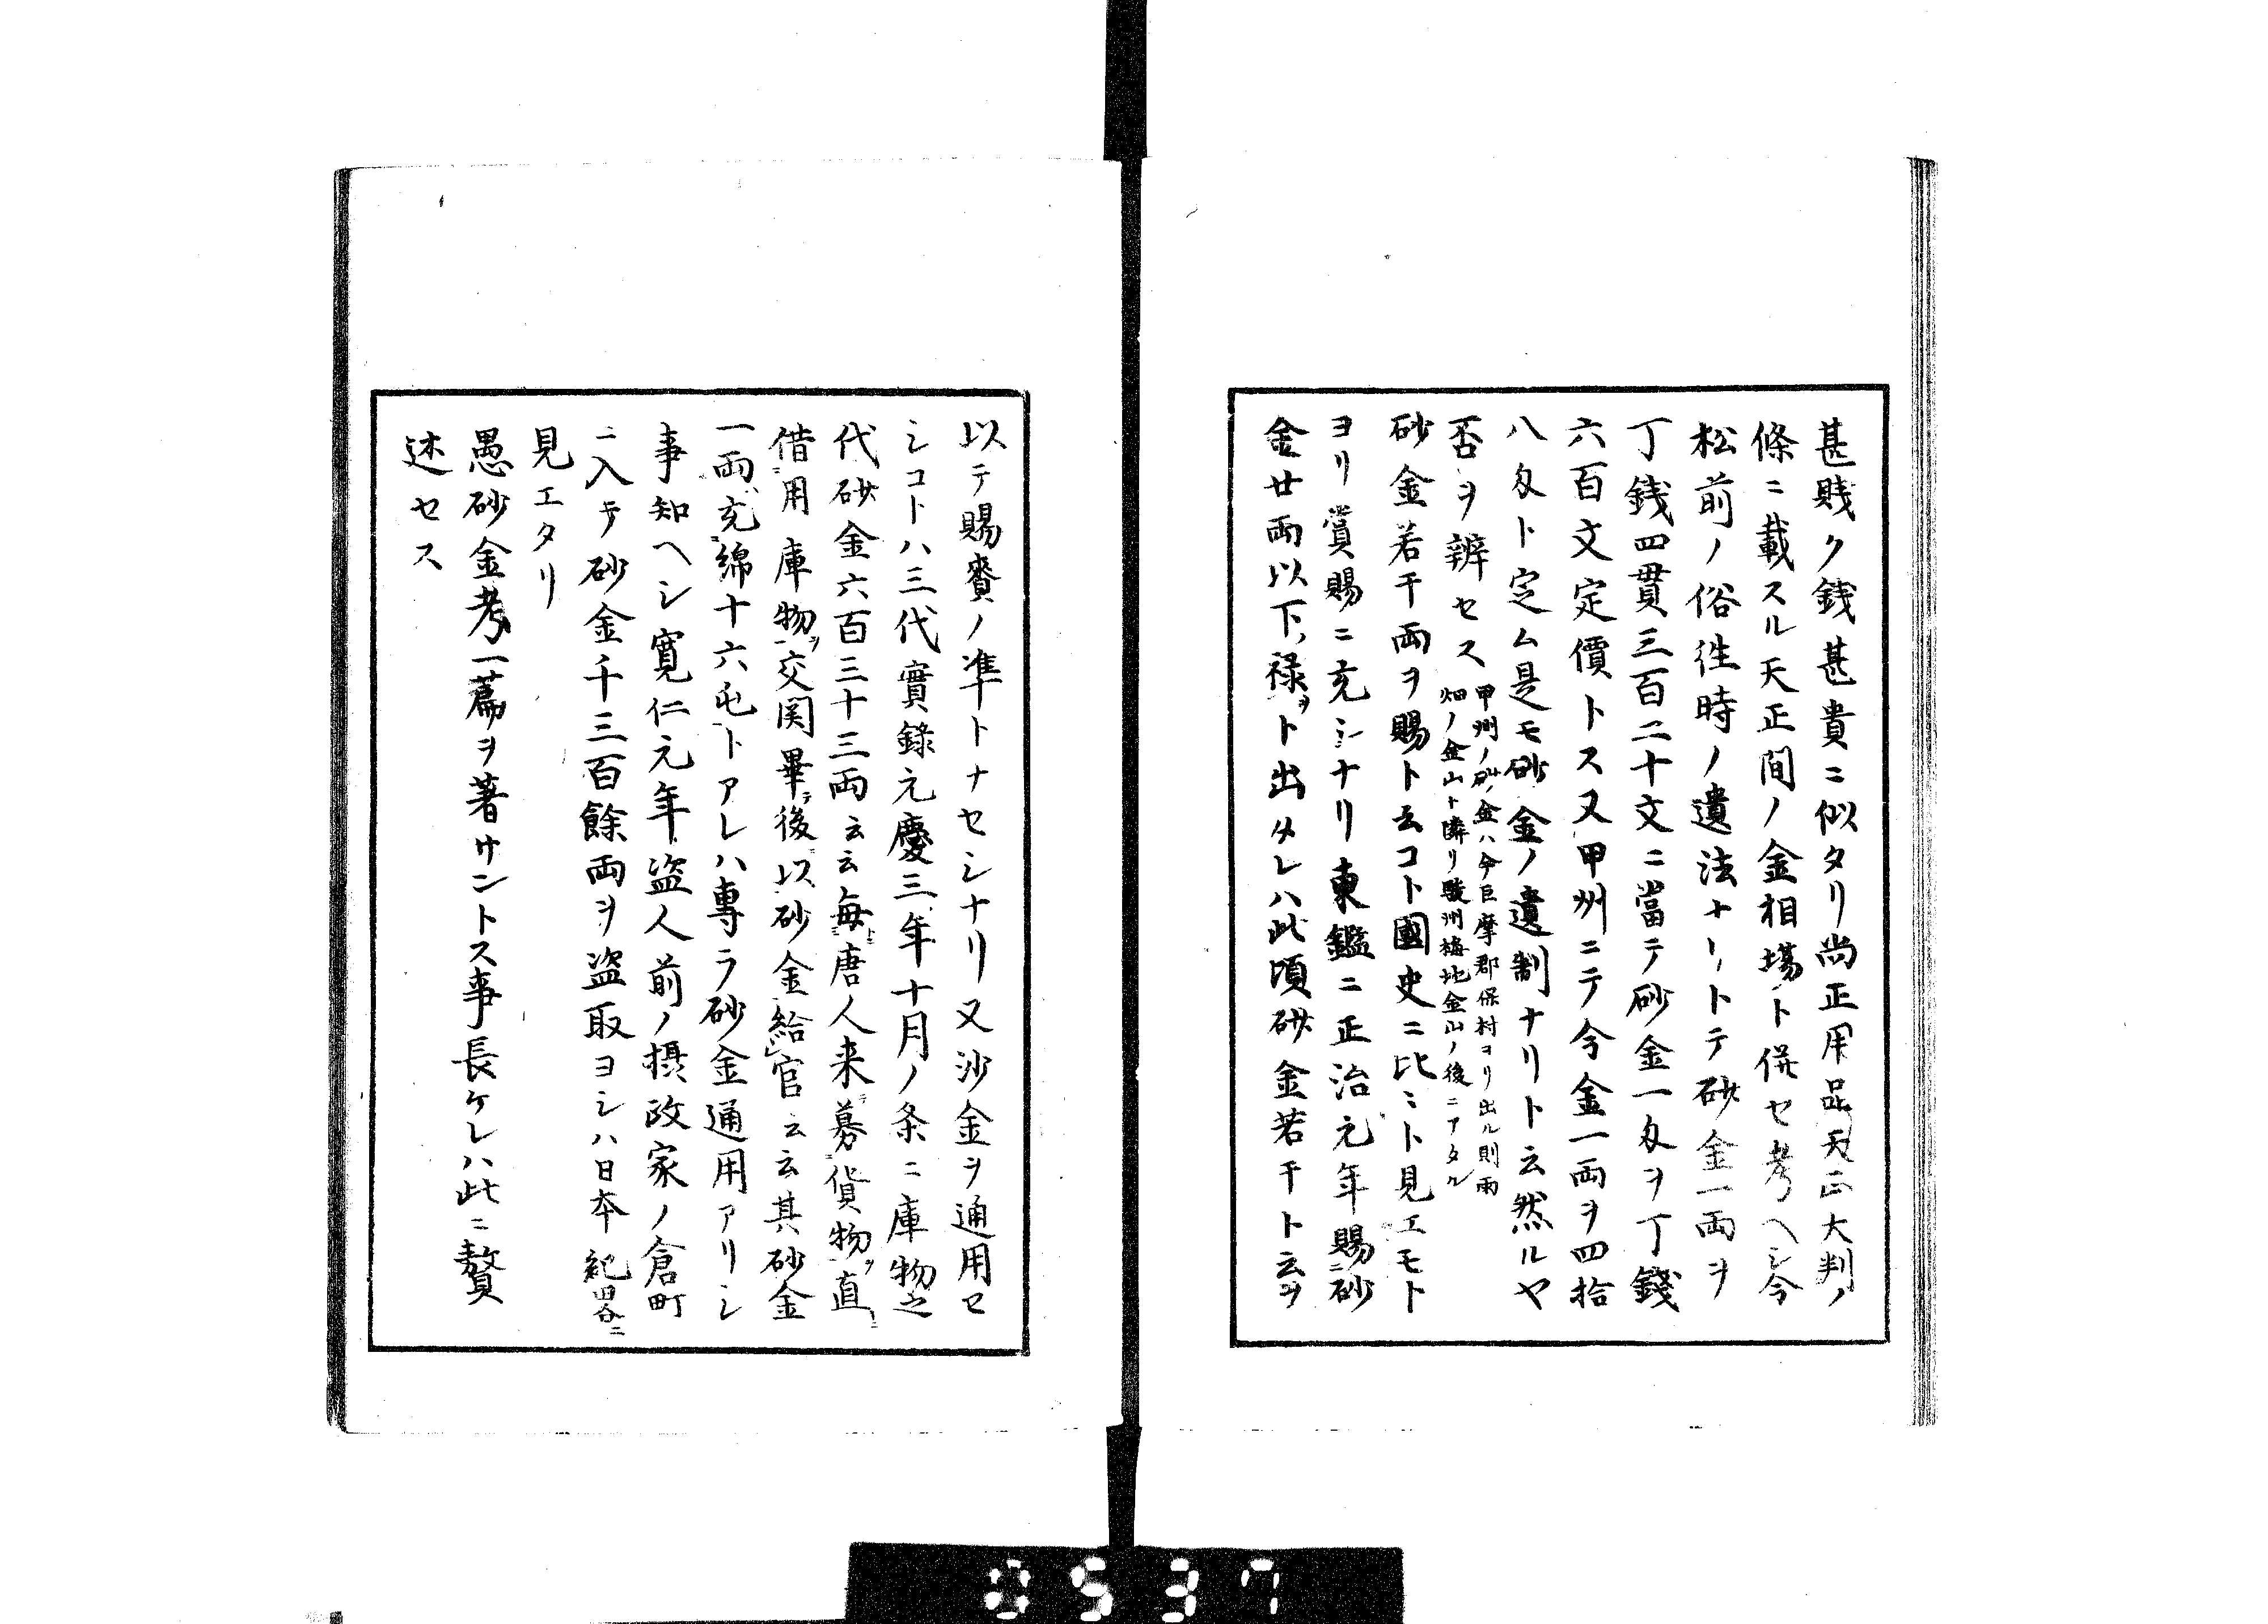 甚賎ク銭甚貴ニ似タリ尚正用品天正大判ノ
條ニ載スル天正間ノ金相場ト併セ考ヘシ今
松前ノ俗徃時ノ遺法ナリトテ砂金一両ヲ
丁銭四貫三百二十文ニ當テ砂金一匁ヲ丁錢
六百文定價トス又甲州ニテ今金一両ヲ四拾
八匁ト定ム是モ砂金ノ遺制ナリト云然ルヤ
否ヲ辨セス
甲州ノ砂金ハ今巨摩郡保村ヨリ出ル則雨
畑ノ金山ト隣リ駿州梅地金山ノ後ニアタル
砂金若干両ヲ賜ト云コト國史ニ比ミト見エモト
ヨリ賞賜ニ充シナリ東鑑ニ正治元年賜ニ砂
金廿両以下ノ禄ヲト出タレハ此頃砂金若干ト云ヲ
以テ賜賚ノ準トナセシナリ又沙金ヲ通用セ
シコトハ三代實錄元慶三年十月ノ条ニ庫物之
代砂金六百三十三両云云毎ニ唐人来テ募ニ貨物ヲ直ニ
借ニ用庫物ヲ一交関畢テ後ニ以砂金給官云云其砂金
一両ニ充ニ綿十六屯トアレハ專ラ砂金通用アリシ
事知ヘシ寛仁元年盗人前ノ摂政家ノ倉町
ニ入テ砂金千三百餘両ヲ盗取ヨシハ日本紀畧ニ
見エタリ
愚砂金考一篇ヲ著サントス事長ケレハ此ニ贅
述セス
0537